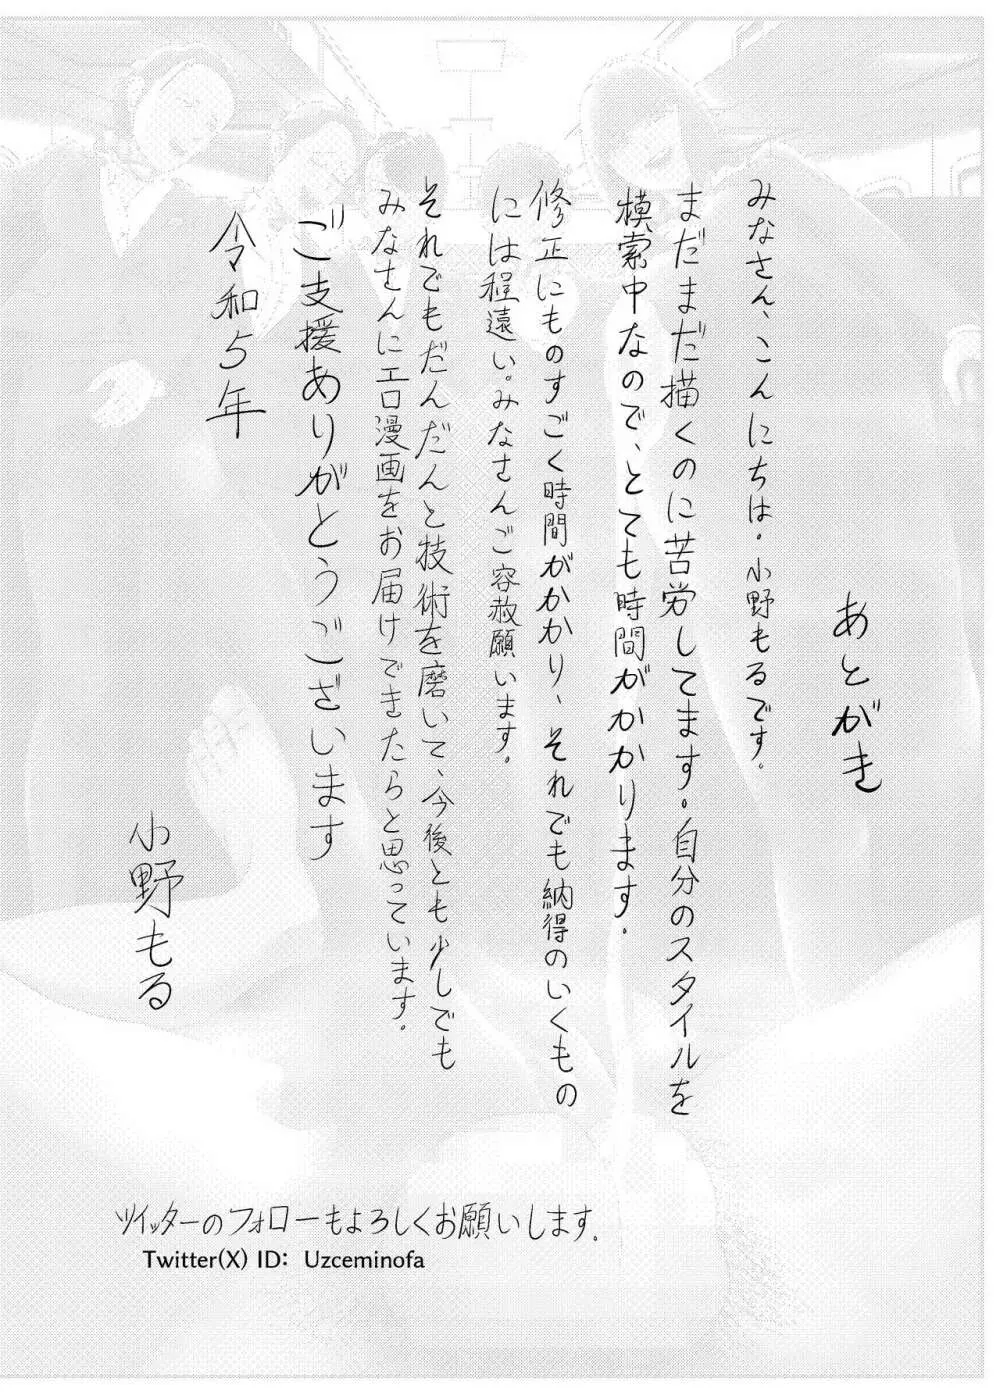 あとがき
みなさん、こんにちは。小野もるです。
まだまだ描くのに苦労してます。自分のスタイルを
模索中なので、とても時間がかかります。
修正にものすごく時間がかかり、それでも納得のいくもの
には程遠い。みなさんご容赦願います。
それでもだんだんと技術を磨いて、今後とも少しでも
みなさんにエロ漫画をお届けできたらと思っています。
ご支援ありがとうございます
令和5年
小野もる
ツイッターのフォローもよろしくお願いします.
Twitter(X) ID: Uzceminofa